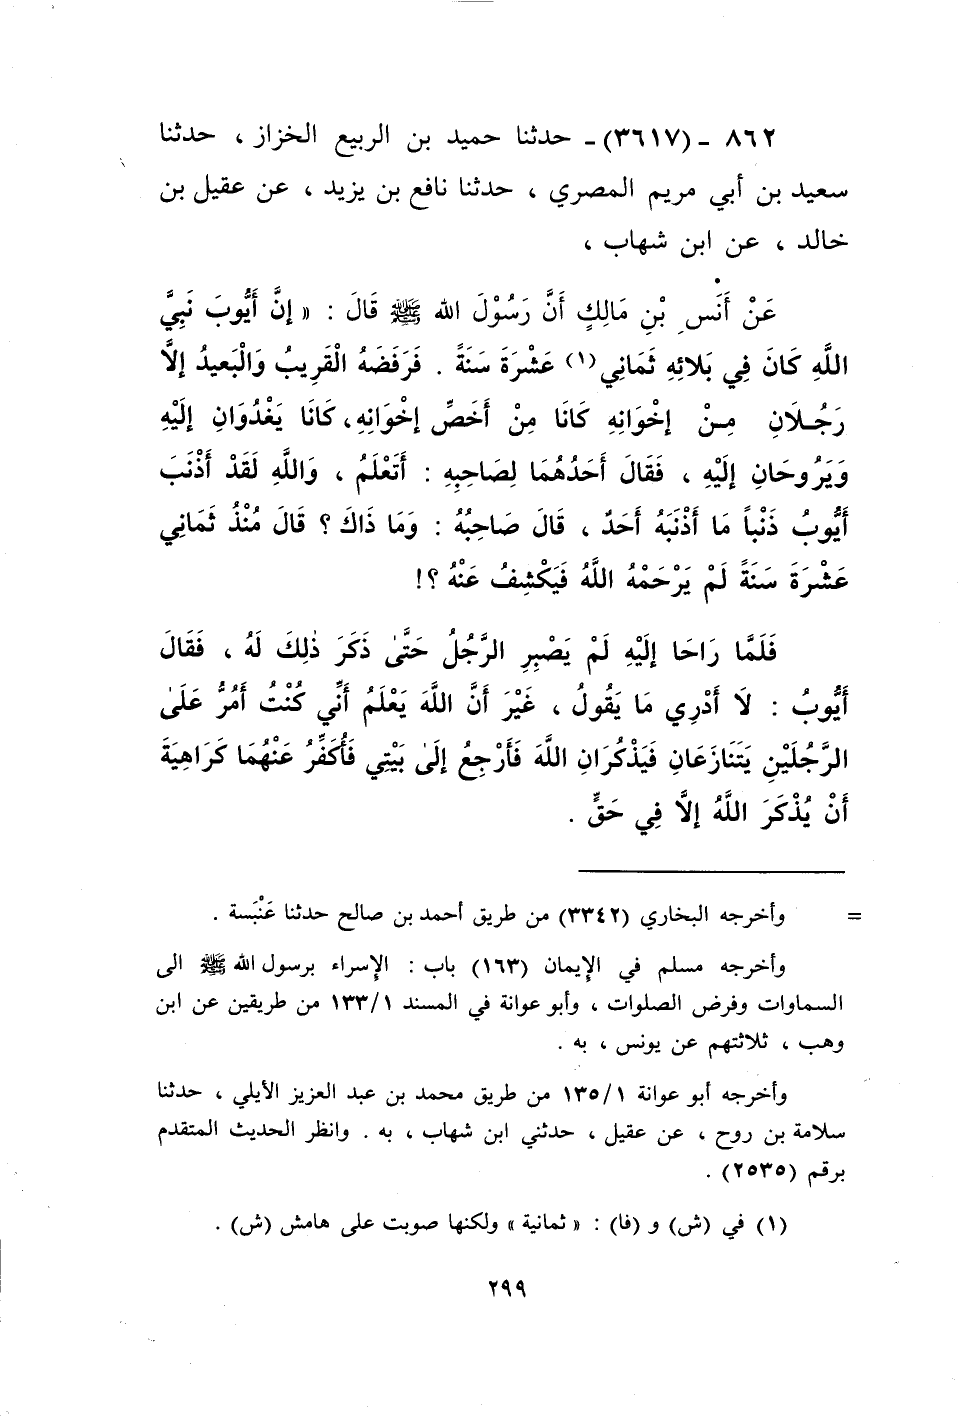 ٨٦٢ ـ (٣٦١٧) ـ حدثنا حميد بن الربيع الخزاز ، حدثنا
سعيد بن أبي مريم المصري ، حدثنا نافع بن يزيد ، عن عقيل بن
خالد ، عن ابن شهاب ،
عَنْ أَنَسِ بْنِ مَالِكٍ أَنَّ رَسُوْلَ الله ﷺ قَالَ : « إِنَّ أَيُّوبَ نَبِيَّ
اللَّهِ كَانَ فِي بَلائِهِ ثَمَانِي (١) عَشْرَةَ سَنَةً . فَرَفَضَهُ الْقَرِيبُ وَالْبَعِيدُ إِلَّا
رَجُلَانِ مِنْ إِخْوَانِهِ كَانَا مِنْ أَخَصِّ إِخْوَانِهِ، كَانَا يَغْدُوَانِ إِلَيْهِ
وَيَرُوحَانِ إِلَيْهِ ، فَقَالَ أَحَدُهُمَا لِصَاحِبِهِ : أَتَعْلَمُ ، وَاللَّهِ لَقَدْ أَذْنَبَ
أَيُّوبُ ذَنْباً مَا أَذْنَبَهُ أَحَدٌ ، قَالَ صَاحِبُهُ : وَمَا ذَاكَ ؟ قَالَ مُنْذُ ثَمَانِي
عَشْرَةَ سَنَةً لَمْ يَرْحَمْهُ اللَّهُ فَيَكْشِفُ عَنْهُ ؟!
فَلَمَّا رَاحَا إِلَيْهِ لَمْ يَصْبِرِ الرَّجُلُ حَتَّىٰ ذَكَرَ ذٰلِكَ لَهُ ، فَقَالَ
أَيُّوبُ : لَا أَدْرِي مَا يَقُولُ ، غَيْرَ أَنَّ اللَّهَ يَعْلَمُ أَنِّي كُنْتُ أَمُرُّ عَلَىٰ
الرَّجُلَيْنِ يَتَنَازَعَانِ فَيَذْكُرَانِ اللَّهَ فَأَرْجِعُ إِلَىٰ بَيْتِي فَأُكَفِّرُ عَنْهُمَا كَرَاهِيَةَ
أَنْ يُذْكَرَ اللَّهُ إِلَّا فِي حَقٍّ .
= وأخرجه البخاري (٣٣٤٢) من طريق أحمد بن صالح حدثنا عَنْبَسة .
وأخرجه مسلم في الإيمان (١٦٣) باب : الإسراء برسول الله ﷺ الى
السماوات وفرض الصلوات ، وأبو عوانة في المسند ١/١٣٣ من طريقين عن ابن
وهب ، ثلاثتهم عن يونس ، به .
وأخرجه أبو عوانة ١/١٣٥ من طريق محمد بن عبد العزيز الأيلي ، حدثنا
سلامة بن روح ، عن عقيل ، حدثني ابن شهاب ، به . وانظر الحديث المتقدم
برقم (٢٥٣٥) .
(١) في (ش) و (فا) : « ثمانية » ولكنها صوبت على هامش (ش) .
٢٩٩